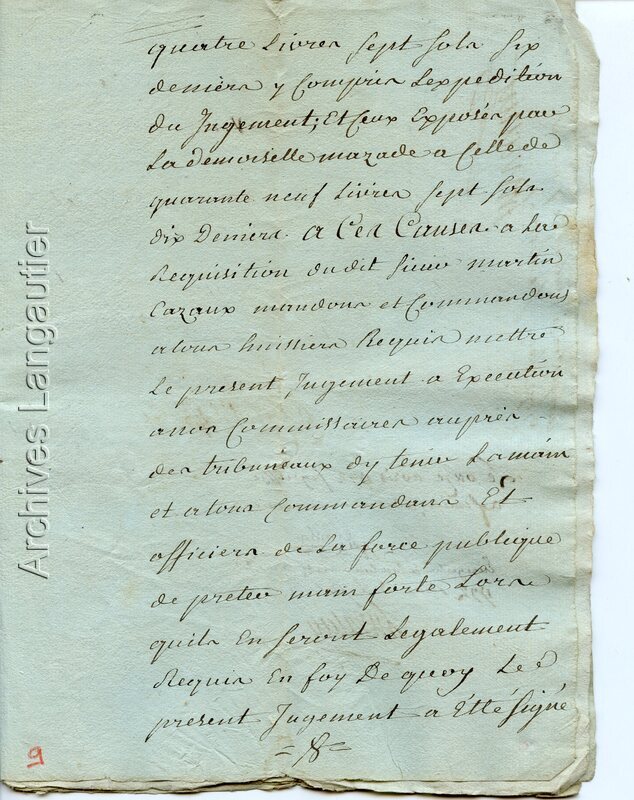 quatre Livres Sept Sols Six
deniers y Compris Lexpedition
du Jugement; Et Ceux Exposés par
La demoiselle mazade a Celle de
quarante neuf Livres Sept Sols
dix Deniers. a Ces Causes a La
Requisition dudit Sieur martin
Cazaux mandons et Commandons
atous huissiers Requis mettre
Le present Jugement a Execution
anos Commissaires auprès
des tribuneaux dy tenir Lamain
et atous Commandans Et
officiers de La force publique
de preter main forte Lors
quils En Seront Legalement
Requis En foy De quoy Le
present Jugement a Etté Signé
Archives Langautier